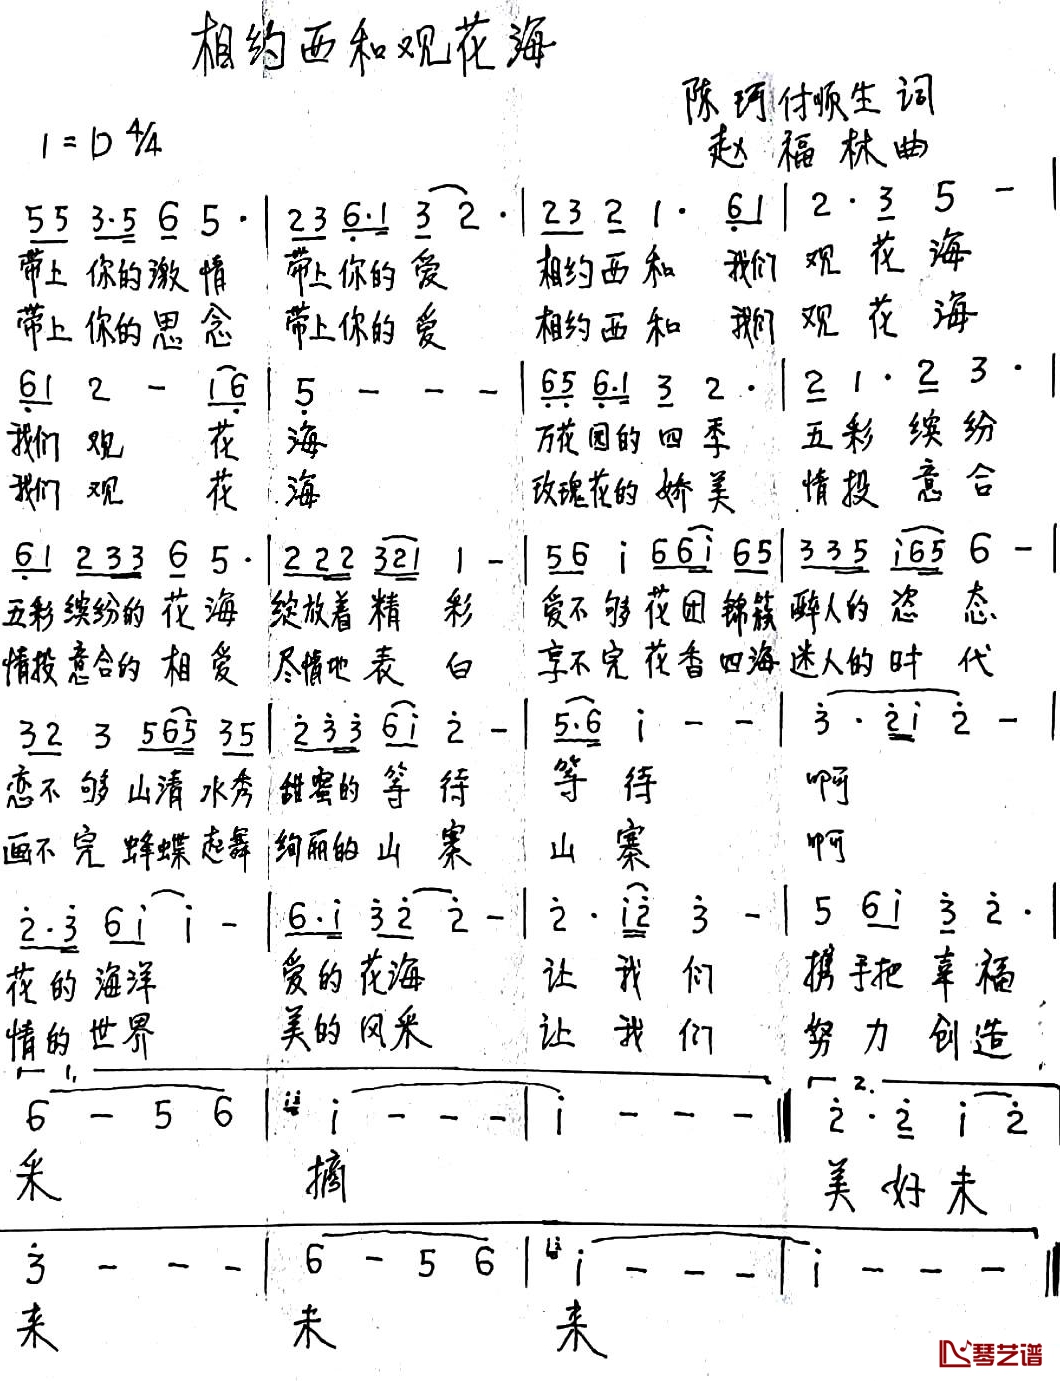 相约西和观花海
陈珂付顺生词
1=D 4/4
赵福林曲
55 3·5 6 5· | 23 6·1 3 2· | 23 2 1· 61 | 2·3 5 - |
带上你的激情 带上你的爱 相约西和 我们观花海
带上你的思念 带上你的爱 相约西和 我们观花海
61 2 - i6 | 5 - - - | 65 6·1 3 2· | 2 1· 2 3· |
我们观 花 海 万花园的四季 五彩缤纷
我们观 花 海 玫瑰花的娇美 情投意合
61 233 6 5· | 222 321 1 - | 56 i 66i 65 | 335 i65 6 - |
五彩缤纷的花海 绽放着精彩 爱不够花团锦簇 醉人的姿态
情投意合的相爱 尽情地表白 享不完花香四海 迷人的时代
32 3 565 35 | 2̇3̇3̇ 6i 2̇ - | 5·6 i - - | 3̇·2̇i 2̇ - |
恋不够山清水秀 甜蜜的等待 等待 啊
画不完蜂蝶起舞 绚丽的山寨 山寨 啊
2̇·3̇ 6i i - | 6·i 3̇2̇ 2̇ - | 2̇·i2̇ 3̇ - | 5 6i 3̇ 2̇· |
花的海洋 爱的花海 让我们 携手把幸福
情的世界 美的风采 让我们 努力创造
1. 2.
6 - 5 6 | i - - - | i - - - ‖ 2̇·2̇ i 2̇
采 摘 美好未
3̇ - - - | 6 - 5 6 | i - - - | i - - - ‖
来 未 来
琴艺谱